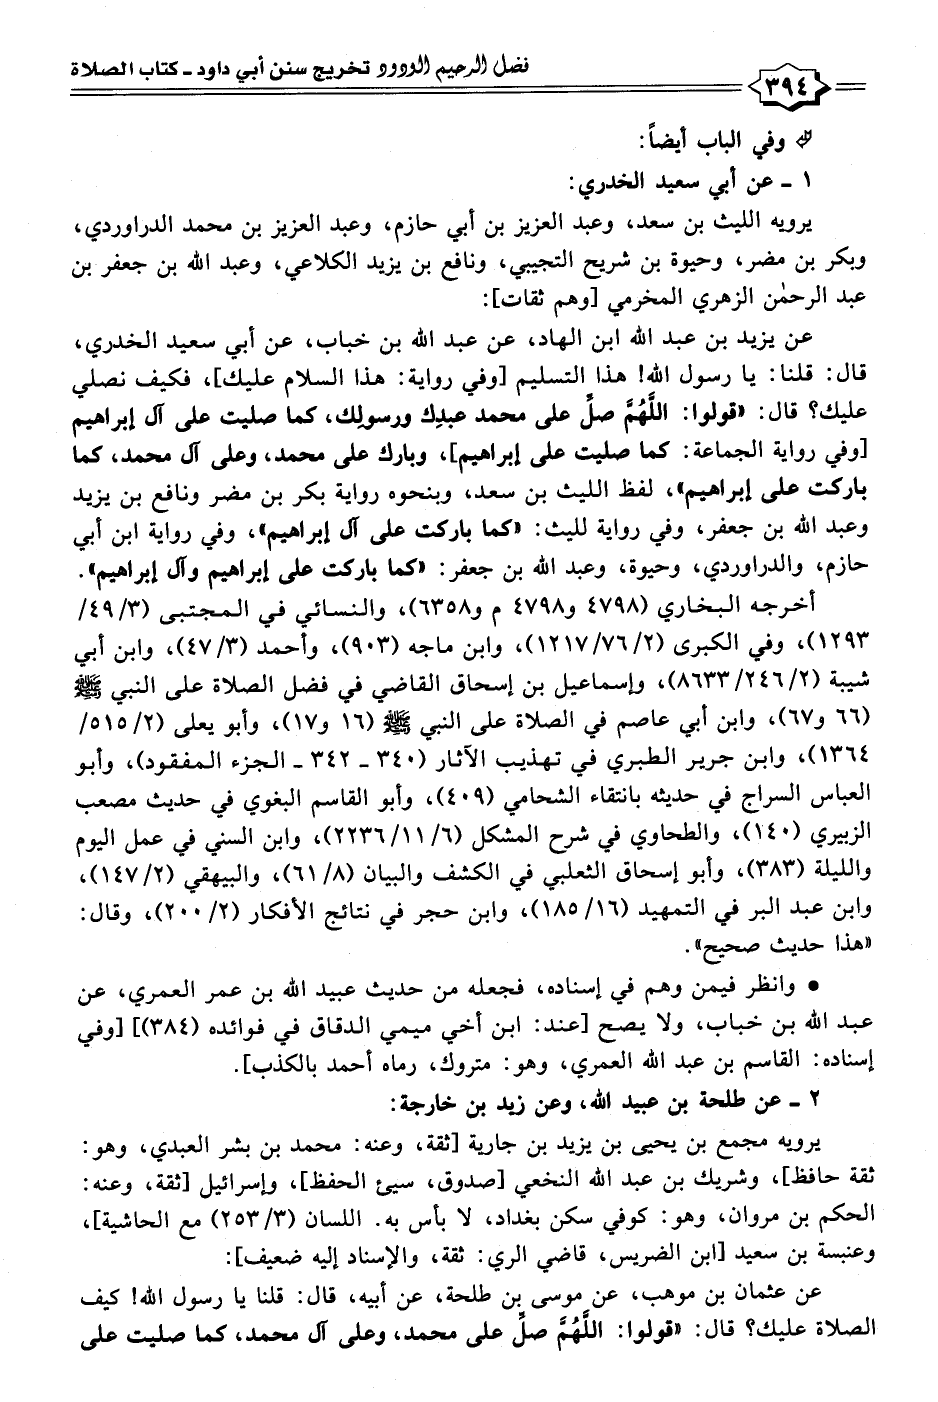 فضل الرحيم الودود تخريج سنن أبي داود ـ كتاب الصلاة
٣٩٤
وفي الباب أيضاً:
١ ـ عن أبي سعيد الخدري:
يرويه الليث بن سعد، وعبد العزيز بن أبي حازم، وعبد العزيز بن محمد الدراوردي،
وبكر بن مضر، وحيوة بن شريح التجيبي، ونافع بن يزيد الكلاعي، وعبد الله بن جعفر بن
عبد الرحمٰن الزهري المخرمي [وهم ثقات]:
عن يزيد بن عبد الله ابن الهاد، عن عبد الله بن خباب، عن أبي سعيد الخدري،
قال: قلنا: يا رسول الله! هذا التسليم [وفي رواية: هذا السلام عليك]، فكيف نصلي
عليك؟ قال: «قولوا: اللَّهُمَّ صلِّ على محمد عبدِك ورسولِك، كما صليت على آل إبراهيم
[وفي رواية الجماعة: كما صليت على إبراهيم]، وبارك على محمد، وعلى آل محمد، كما
باركت على إبراهيم»، لفظ الليث بن سعد، وبنحوه رواية بكر بن مضر ونافع بن يزيد
وعبد الله بن جعفر، وفي رواية لليث: «كما باركت على آل إبراهيم»، وفي رواية ابن أبي
حازم، والدراوردي، وحيوة، وعبد الله بن جعفر: «كما باركت على إبراهيم وآل إبراهيم».
أخرجه البخاري (٤٧٩٨ و٤٧٩٨ م و٦٣٥٨)، والنسائي في المجتبى (٣/ ٤٩/
١٢٩٣)، وفي الكبرى (٢/ ٧٦/ ١٢١٧)، وابن ماجه (٩٠٣)، وأحمد (٣/ ٤٧)، وابن أبي
شيبة (٢/ ٢٤٦/ ٨٦٣٣)، وإسماعيل بن إسحاق القاضي في فضل الصلاة على النبي ﷺ
(٦٦ و٦٧)، وابن أبي عاصم في الصلاة على النبي ﷺ (١٦ و١٧)، وأبو يعلى (٢/ ٥١٥/
١٣٦٤)، وابن جرير الطبري في تهذيب الآثار (٣٤٠ ـ ٣٤٢ ـ الجزء المفقود)، وأبو
العباس السراج في حديثه بانتقاء الشحامي (٤٠٩)، وأبو القاسم البغوي في حديث مصعب
الزبيري (١٤٠)، والطحاوي في شرح المشكل (٦/ ١١/ ٢٢٣٦)، وابن السني في عمل اليوم
والليلة (٣٨٣)، وأبو إسحاق الثعلبي في الكشف والبيان (٨/ ٦١)، والبيهقي (٢/ ١٤٧)،
وابن عبد البر في التمهيد (١٦/ ١٨٥)، وابن حجر في نتائج الأفكار (٢/ ٢٠٠)، وقال:
«هذا حديث صحيح».
● وانظر فيمن وهم في إسناده، فجعله من حديث عبيد الله بن عمر العمري، عن
عبد الله بن خباب، ولا يصح [عند: ابن أخي ميمي الدقاق في فوائده (٣٨٤)] [وفي
إسناده: القاسم بن عبد الله العمري، وهو: متروك، رماه أحمد بالكذب].
٢ ـ عن طلحة بن عبيد الله، وعن زيد بن خارجة:
يرويه مجمع بن يحيى بن يزيد بن جارية [ثقة، وعنه: محمد بن بشر العبدي، وهو:
ثقة حافظ]، وشريك بن عبد الله النخعي [صدوق، سيئ الحفظ]، وإسرائيل [ثقة، وعنه:
الحكم بن مروان، وهو: كوفي سكن بغداد، لا بأس به. اللسان (٣/ ٢٥٣) مع الحاشية]،
وعنبسة بن سعيد [ابن الضريس، قاضي الري: ثقة، والإسناد إليه ضعيف]:
عن عثمان بن موهب، عن موسى بن طلحة، عن أبيه، قال: قلنا يا رسول الله! كيف
الصلاة عليك؟ قال: «قولوا: اللَّهُمَّ صلِّ على محمد، وعلى آل محمد، كما صليت على